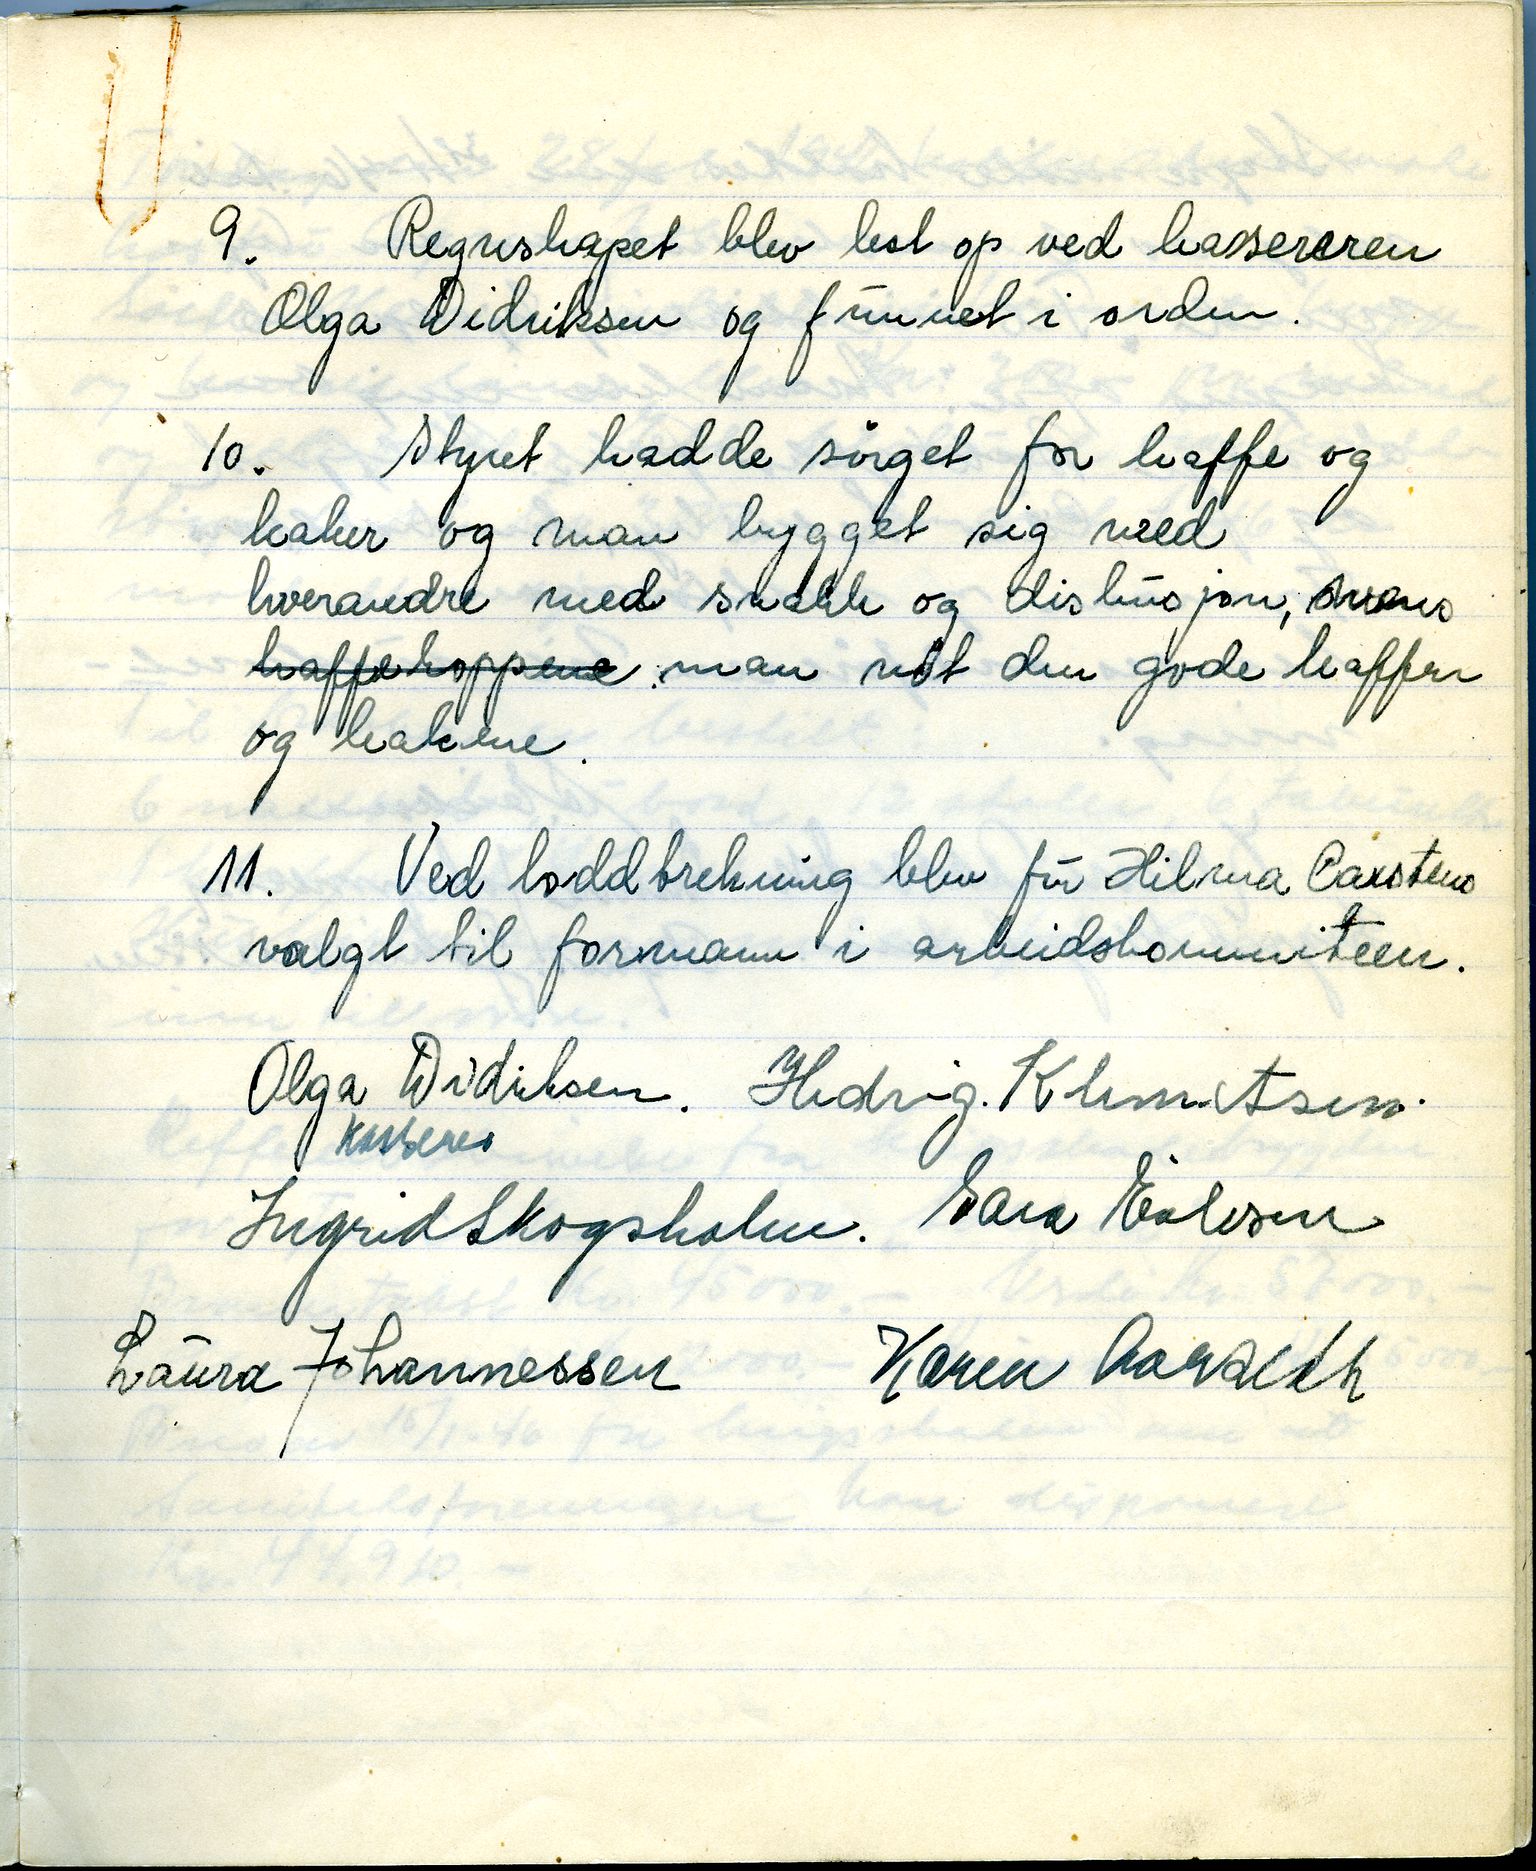 9. Regnskapet blev lest op ved kassereren
Olga Didriksen og funnet i orden.
10. Styret hadde sörget for kaffe og
kaker og man hygget sig med
hverandre med snakk og diskusjon, mens
kaffekoppene man nöt den gode kaffen
og kakene.
11. Ved loddtrekning blev fru Hilma Carstens
valgt til formann i arbeidskommiteen.
Olga Didriksen. Hedvig. Klemetsen.
Kasserer
Ingrid Skogsholm. Sara Eriksen
Laura Johannessen Karen